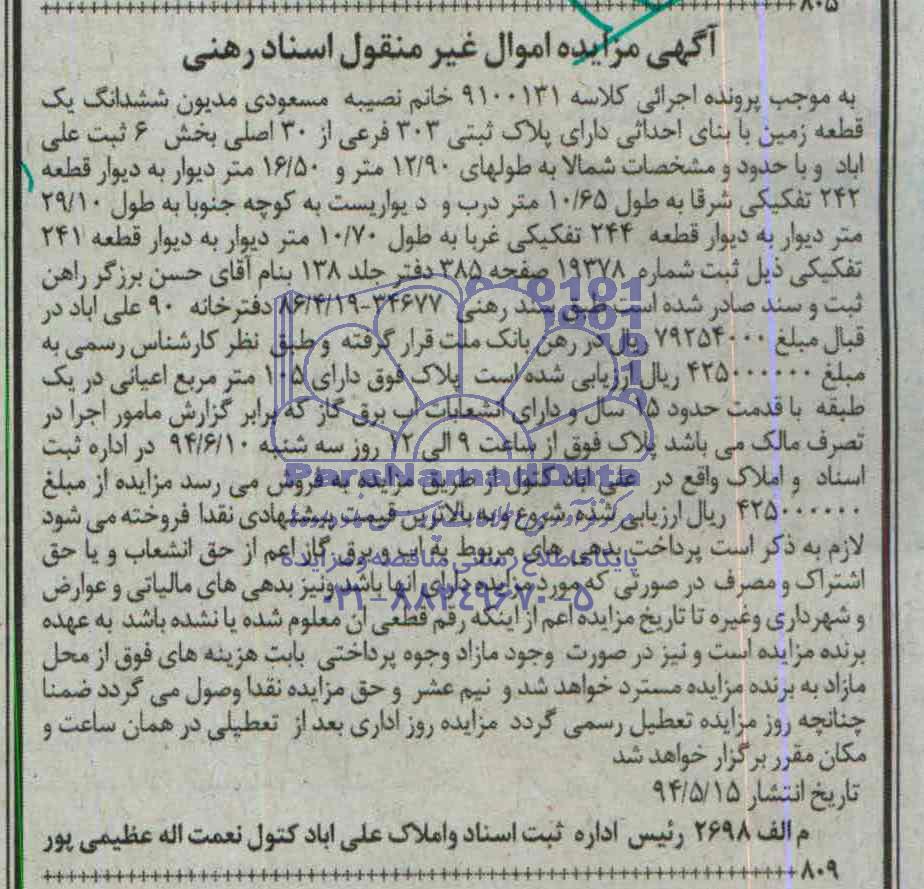 ۸۰۵
آگهی مزایده اموال غیر منقول اسناد رهنی
به موجب پرونده اجرائی کلاسه ۹۱۰۰۱۳۱ خانم نصیبه مسعودی مدیون ششدانگ یک
قطعه زمین با بنای احداثی دارای پلاک ثبتی ۳۰۳ فرعی از ۳۰ اصلی بخش ۶ ثبت علی
اباد و با حدود و مشخصات شمالا به طولهای ۱۲/۹۰ متر و ۱۶/۵۰ متر دیوار به دیوار قطعه
۲۴۲ تفکیکی شرقا به طول ۱۰/۶۵ متر درب و دیواریست به کوچه جنوبا به طول ۲۹/۱۰
متر دیوار به دیوار قطعه ۲۴۴ تفکیکی غربا به طول ۱۰/۷۰ متر دیوار به دیوار قطعه ۲۴۱
تفکیکی ذیل ثبت شماره ۱۹۳۷۸ صفحه ۳۸۵ دفتر جلد ۱۳۸ بنام آقای حسن برزگر راهن
ثبت و سند صادر شده است طبق سند رهنی ۳۴۶۷۷-۸۶/۴/۱۹ دفترخانه ۹۰ علی اباد در
قبال مبلغ ۷۹۲۵۴۰۰۰ ریال در رهن بانک ملت قرار گرفته و طبق نظر کارشناس رسمی به
مبلغ ۴۲۵۰۰۰۰۰۰ ریال ارزیابی شده است پلاک فوق دارای ۱۰۵ متر مربع اعیانی در یک
طبقه با قدمت حدود ۱۵ سال و دارای انشعابات اب برق گاز که برابر گزارش مامور اجرا در
تصرف مالک می باشد پلاک فوق از ساعت ۹ الی ۱۲ روز سه شنبه ۹۴/۶/۱۰ در اداره ثبت
اسناد و املاک واقع در علی اباد کتول از طریق مزایده به فروش می رسد مزایده از مبلغ
۴۲۵۰۰۰۰۰۰ ریال ارزیابی شده شروع و به بالاترین قیمت پیشنهادی نقدا فروخته می شود
لازم به ذکر است پرداخت بدهی های مربوط به اب و برق گاز اعم از حق انشعاب و یا حق
اشتراک و مصرف در صورتی که مورد مزایده دارای انها باشد ونیز بدهی های مالیاتی و عوارض
و شهرداری وغیره تا تاریخ مزایده اعم از اینکه رقم قطعی ان معلوم شده یا نشده باشد به عهده
برنده مزایده است و نیز در صورت وجود مازاد وجوه پرداختی بابت هزینه های فوق از محل
مازاد به برنده مزایده مسترد خواهد شد و نیم عشر و حق مزایده نقدا وصول می گردد ضمنا
چنانچه روز مزایده تعطیل رسمی گردد مزایده روز اداری بعد از تعطیلی در همان ساعت و
مکان مقرر برگزار خواهد شد
تاریخ انتشار ۹۴/۵/۱۵
م الف ۲۶۹۸ رئیس اداره ثبت اسناد واملاک علی اباد کتول نعمت اله عظیمی پور
۸۰۹
ParsNamadData
پایگاه اطلاع رسانی مناقصه و مزایده
۰۲۱-۸۸۳۴۹۶۷۰-۵